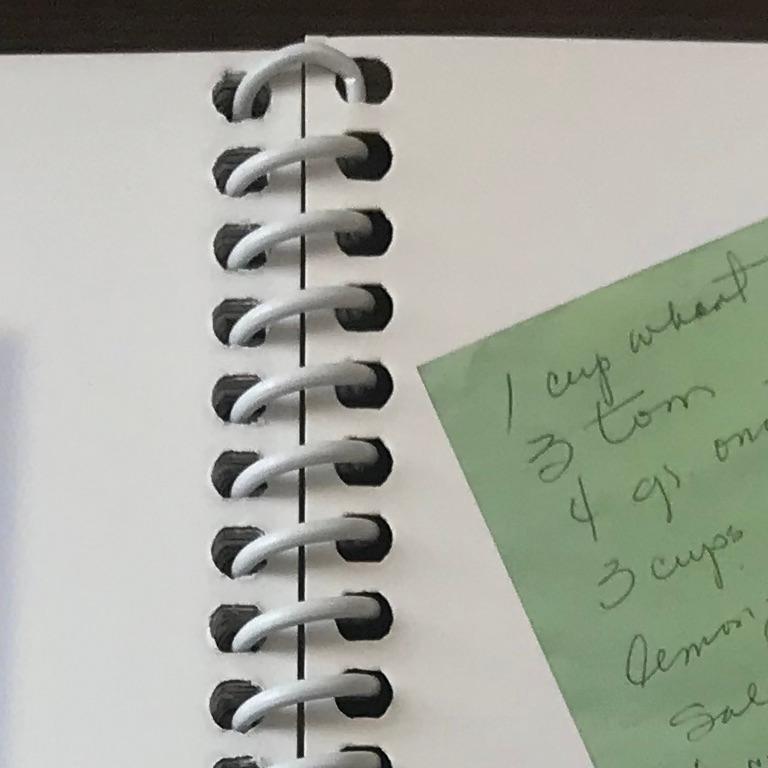 1 cup wheat
3 tom
4 gr on
3 cups
lemon
Sal